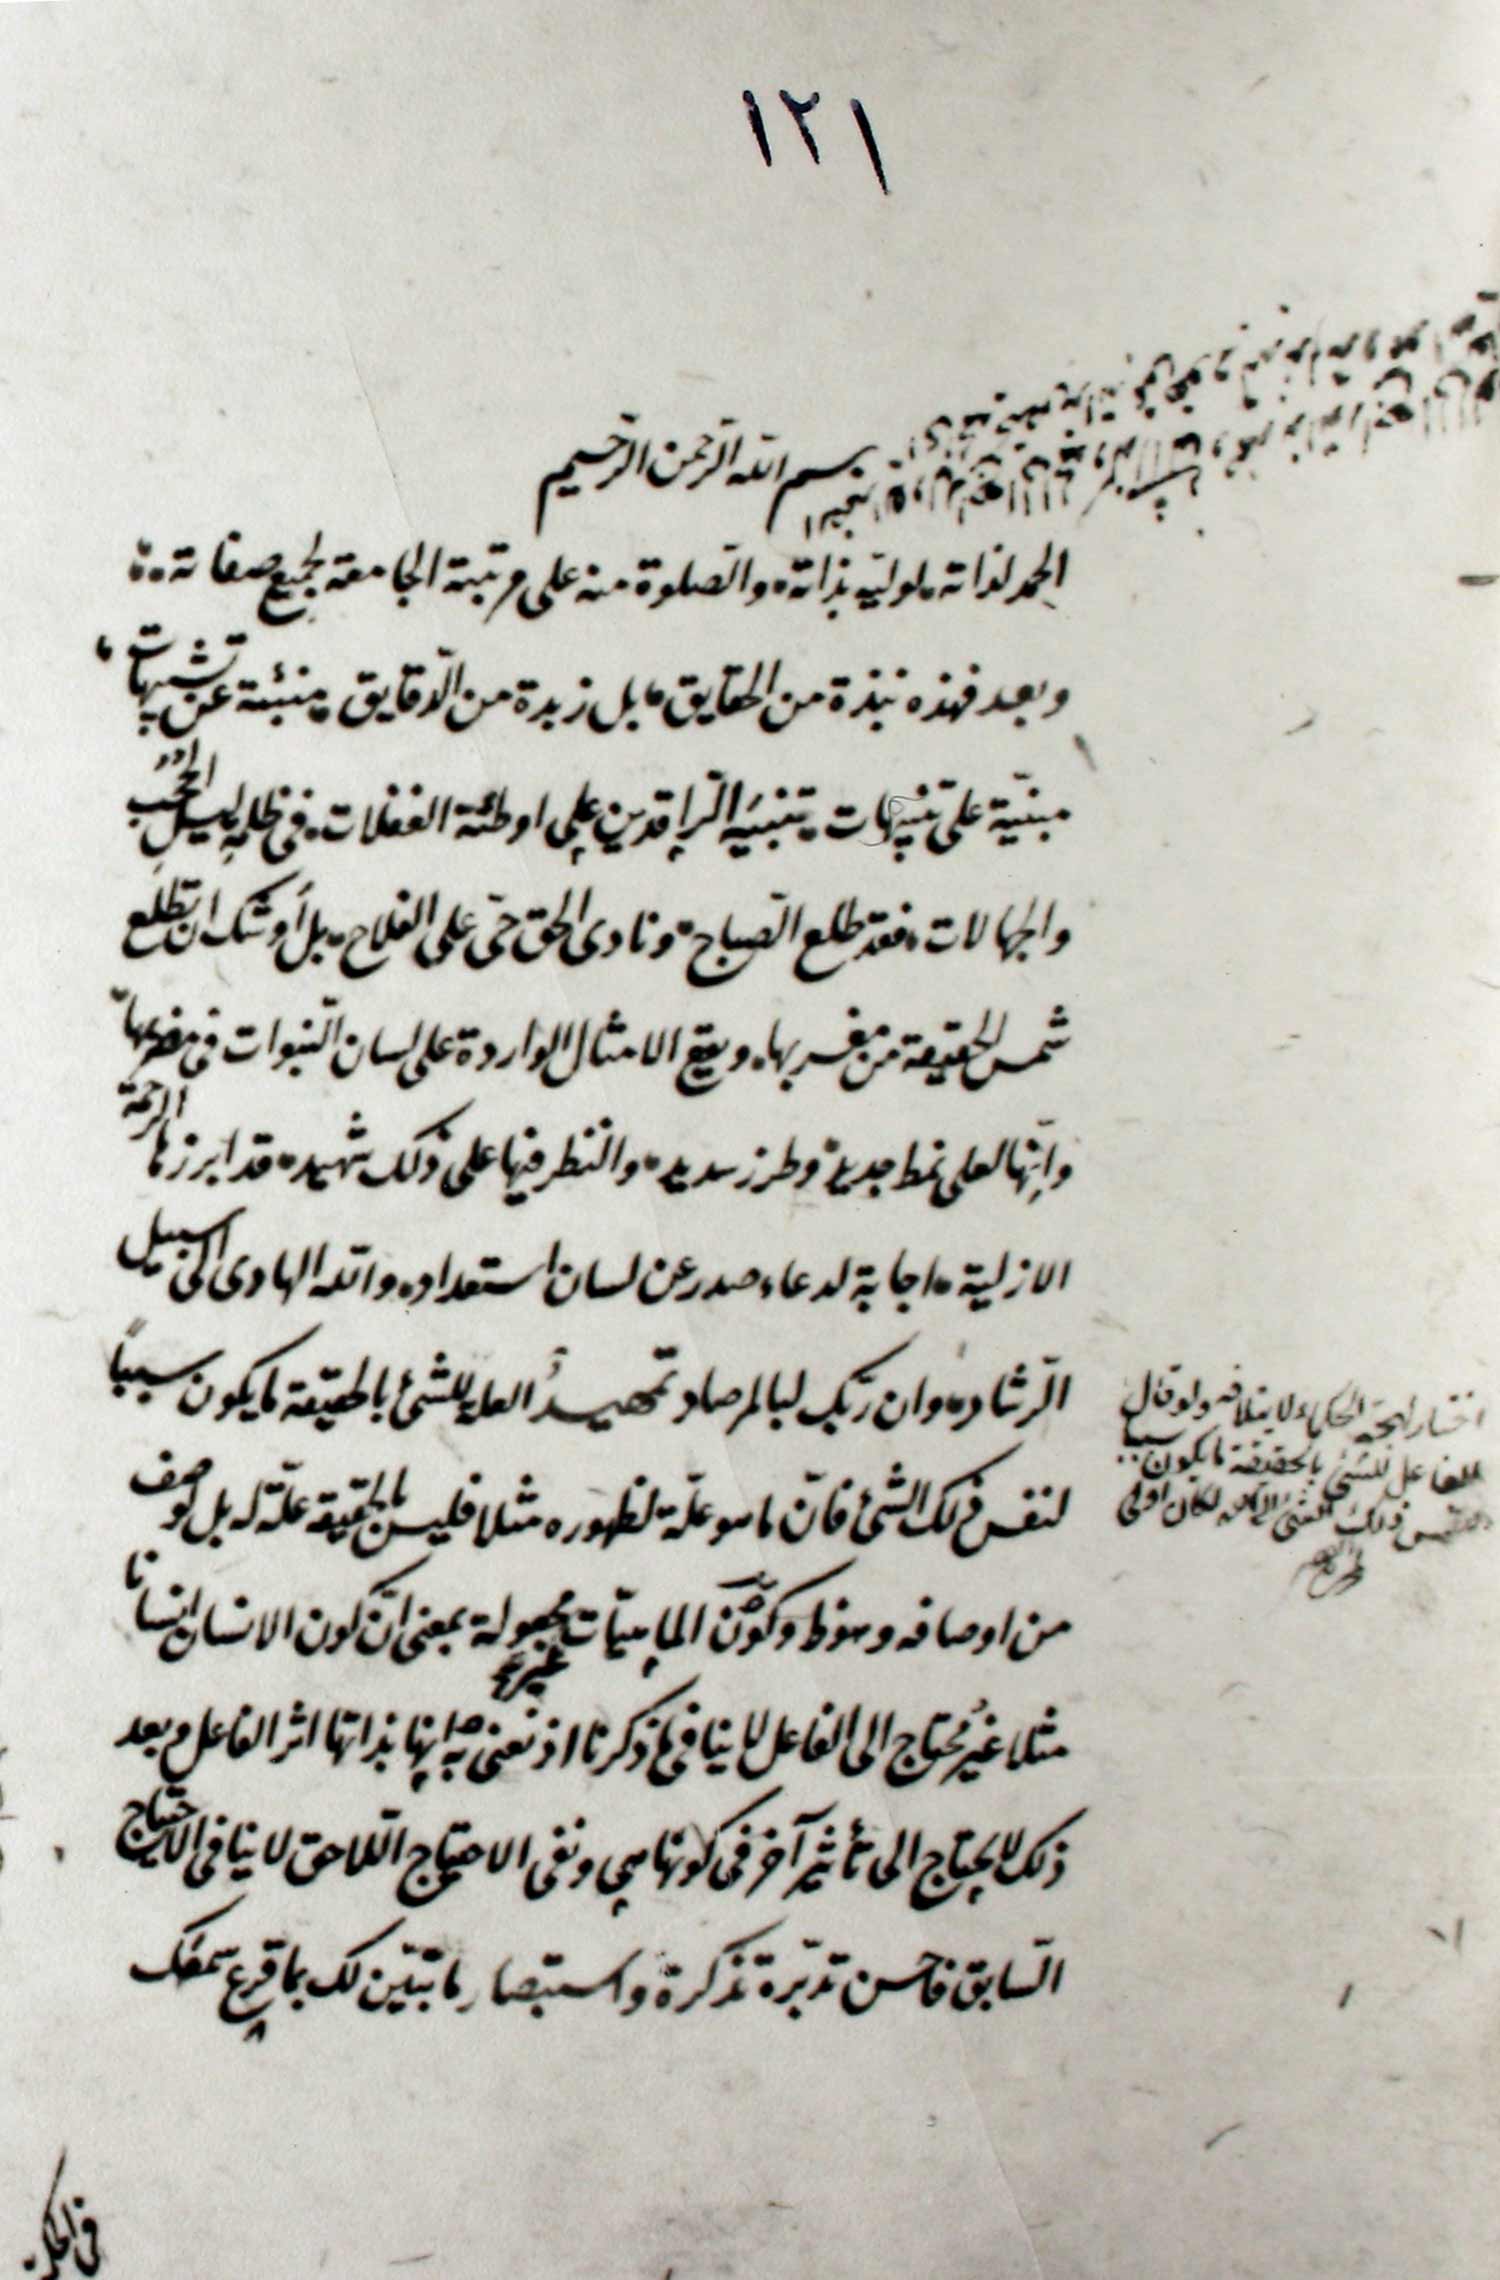 ١٢١
بسم الله الرحمن الرحيم
الحمد لذاته لوليه بذاته والصلوة منه على مرتبته الجامعة لجميع صفاته
وبعد فهذه نبذة من الحقايق بل زبدة من الدقايق منبئة عن تشبيهات
مبنية على تنبيهات تنبيه الراقدين على اوطئة الغفلات في ظلم ليل الحجب
والجهالات فقد طلع الصباح ونادى الحق حي على الفلاح بل اوشك ان تطلع
شمس الحقيقة من مغربها ويقع الامثال الواردة على لسان النبوات في مضربها
وانها لعلى نمط جديد وطرز سديد والنظر فيها على ذلك شهيد قد ابرزها الرحمة
الازلية اجابة لدعاء صدر عن لسان استعداده والله الهادى الى سبيل
الرشاد وان ربك لبالمرصاد تمهيد العلة للشئ بالحقيقة ما يكون سببا
لنفس ذلك الشئ فان ما هو علة لظهوره مثلا فليس بالحقيقة علة له بل لوصف
من اوصافه وهو ظ وكون الماهيات غير مجعولة بمعنى ان كون الانسان انسانا
مثلا غير محتاج الى الفاعل لا ينافي ما ذكرنا اذ نعنى به انها بذاتها اثر الفاعل وبعد
ذلك لا يحتاج الى تأثير آخر في كونها هي ونفى الاحتياج اللاحق لا ينافى الاحتياج
السابق فاحسن تدبره تذكرة واستبصار ما تبين لك بما قرع سمعك
اختار لهجة الحكماء ولو قال
الفاعل للشئ بالحقيقة ما يكون سببا
لنفس ذلك الشئ لكان اولى